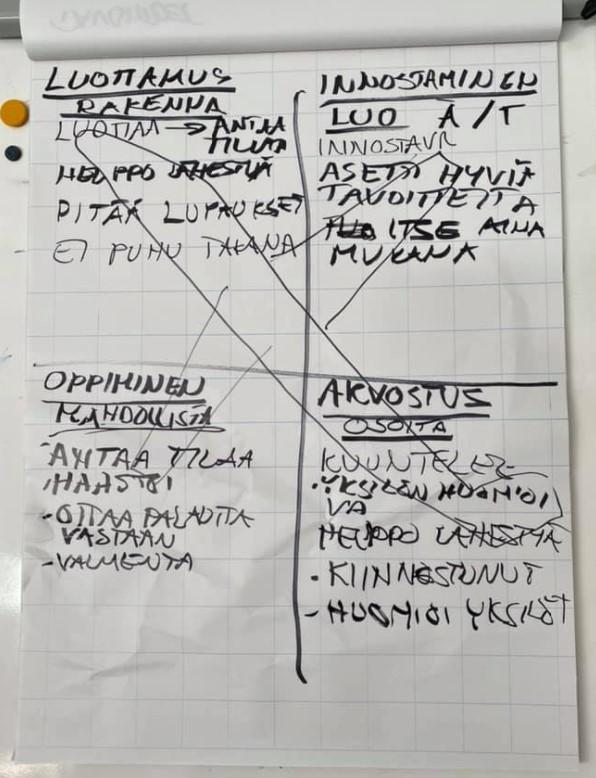 LUOTTAMUS
RAKENNA
LUOTTAA → ANTAA
TILAA
HELPPO LÄHESTYÄ
PITÄÄ LUPAUKSET
EI PUHU TAKANA
INNOSTAMINEN
LUO Ä/T
INNOSTAVA
ASETTI HYVIÄ
TAVOITTEITA
ITSE AINA
MUKANA
OPPIMINEN
MAHDOLLISTA
ANTAA TILAA
HAASTOI
- OTTAA PALAUTTA
VASTAAN
- VALMENTA
ARVOSTUS
OSOITA
KUUNTELEE
· YKSILÖN HUOMIOI
VA
HELPPO LÄHESTYÄ
· KIINNOSTUNUT
- HUOMIOI YKSILÖT